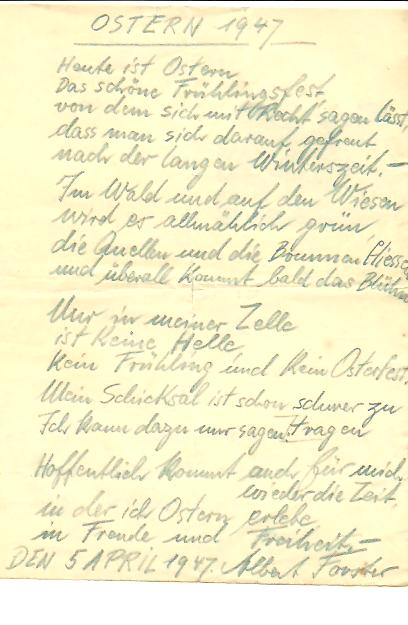 OSTERN 1947
Heute ist Ostern,
Das schöne Frühlingsfest,
von dem sich mit Recht sagen lässt,
dass man sich darauf gefreut
nach der langen Winterszeit. –
Im Wald und auf den Wiesen
wird es allmählich grün,
die Quellen und die Brunnen fliessen
und überall kommt bald das Blühn
Nur in meiner Zelle
ist keine Helle,
Kein Frühling und kein Osterfest,
Mein Schicksal ist schon schwer zu
Ich kann dazu nur sagen: tragen
Hoffentlich kommt auch für mich
wieder die Zeit,
in der ich Ostern erlebe
in Freude und Freiheit. –
DEN 5 APRIL 1947. Albert Forster